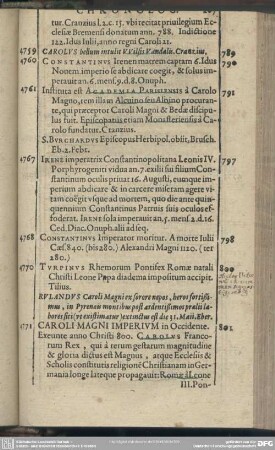 CHRONOLOG.
tur. Cranzius l.2.c.15. vbi recitat priuilegium Ec-
clesiæ Bremensi donatum ann. 788. Indictione
122. Idus Iulii, anno regni Caroli 21.
4759 CAROLVS bellum intulit Vvilsis Vandalis. Cranzius. 789
4760 CONSTANTINVS Irenen matrem captam 6. Idus 790
Nouem. imperio se abdicare coegit, & solus im-
perauit an. 6. mens. 9. d. 8. Onuph.
4761 Instituta est ACADEMIA PARISIENSIS à Carolo 791
Magno, rem illam Alcuino seu Albino procuran-
te, qui præceptor Caroli Magni & Bedæ discipu-
lus fuit. Episcopatus etiam Monasteriensis à Ca-
rolo funditur. Cranzius.
S. BVRCHARDVS Episcopus Herbipol. obiit, Brusch.
Eb. 2. Febr.
4767 IRENE imperatrix Constantinopolitana Leonis IV. 797
Porphyrogeniti vidua an. 7. exilii sui filium Con-
stantinum oculis priuat 16. Augusti, eumque im-
perium abdicare & in carcere miseram agere vi-
tam coëgit vsque ad mortem, quo die ante quin-
quennium Constantinus Patruis suis oculos ef-
foderat. IRENE sola imperauit an. 5. mens. 2. d. 16.
Ced. Diac. Onuph. alii ad seq.
4768 CONSTANTINVS Imperator moritur. A morte Iulii 798
Cæs. 840. (bis 280.) Alexandri Magni 1120. (ter
280.)
4770 TVRPINVS Rhemorum Pontifex Romæ natali 800
Christi Leone Papa diadema impositum accipit.
Tilius.
RVLANDVS Caroli Magni ex sorore nepos, heros fortissi-
mus, in Pyreneis montibus post ardentissimos præliis la-
bores siti (vt existimatur) extinctus est die 31. Maii. Eber.
4771 CAROLI MAGNI IMPERIVM in Occidente. 801
Exeunte anno Christi 800. CAROLVS Franco-
rum Rex, qui à rerum gestarum magnitudine
& gloria dictus est Magnus, atque Ecclesiis &
Scholis constitutis religionē Christianam in Ger-
mania longe lateque propagauit: Romæ à Leone
III. Pon-